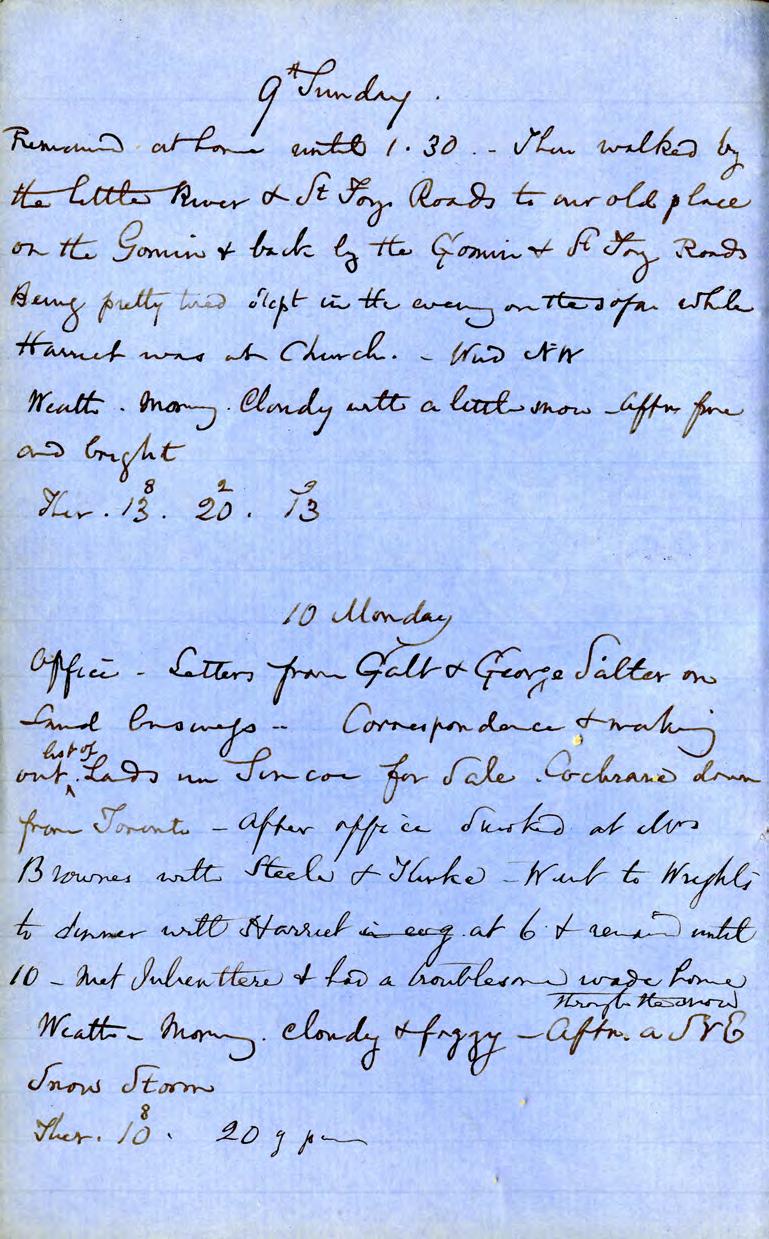 9th Sunday.
Remained at home until 1.30 - Then walked by
the Little River & St Foy Roads to our old place
on the Gomin & back by the Gomin & St Foy Roads
Being pretty tired slept in the evening on the sofa while
Harriet was at Church. - Wind NW
Weath. Morng. Cloudy with a little snow - Aftn fine
and bright
8 2 9
Ther. 13. 20. 13
10 Monday
Office - Letters from Galt & George Salter on
Land business -- Correspondence & making
list of
out ^ Lands in Simcoe for Sale. Cochrane down
from Toronto - After office Smoked at Mrs
Brownes with Steele & - Went to Wrights
to dinner with Harriet in eveg. at 6 & remaind until
10 - Met there & had a troublesome wade home
through the snow
Weath - Morng. cloudy & foggy - Aftn. a
Snow Storm
8
Ther. 10. 20 9 pm